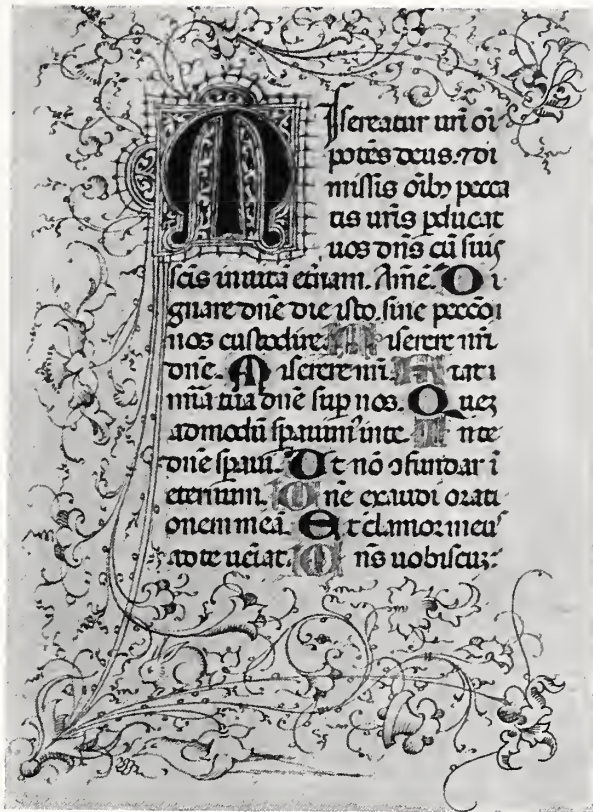 MIsereatur urī oī
potēs deus. ⁊ di
missis oībꝫ pecca
tis uris ꝑducat
uos dn̄s cū suis
scīs īuitā etn̄am. Amē. Di
gnare dn̄e die isto. sine pccōi
nos custodire. Miserere nr̄i
dn̄e. Miserere nr̄i. Fiat i
mīa tua dn̄e sup nos. Queꝫ
admodū sꝑauim⁹ inte. In te
dn̄e sꝑaui. Vt nō ↄfundar ī
eternum. Dn̄e exaudi orati
onem meā. Et clamor meu⁹
ad te ueīat. Dn̄s uobiscuꝫ: